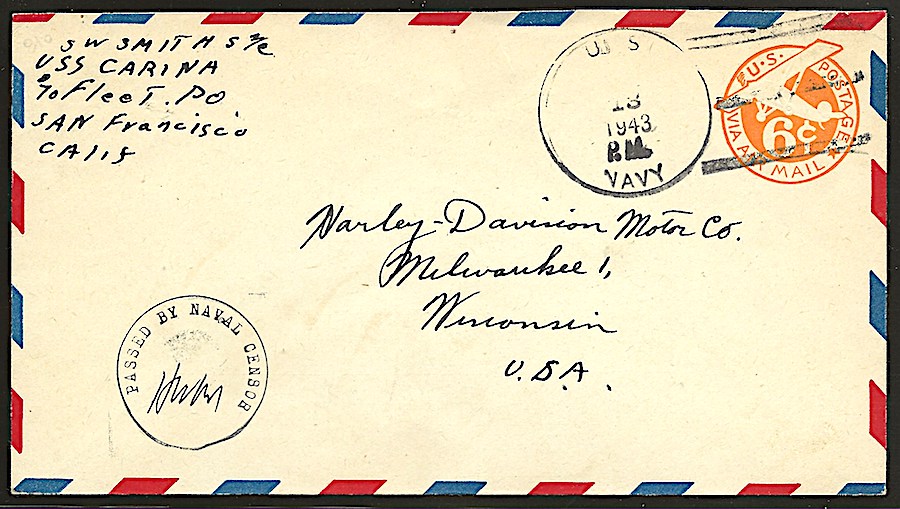 SW SMITH S 2/c
USS CARINA
℅ Fleet. PO
SAN Francisco
CALIf
U.S.
13
1943
P.M.
NAVY
U.S. POSTAGE
6¢
VIA AIR MAIL
Harley-Davision Motor Co.
Milwaukee 1,
Wisconsin
U.S.A.
PASSED BY NAVAL CENSOR